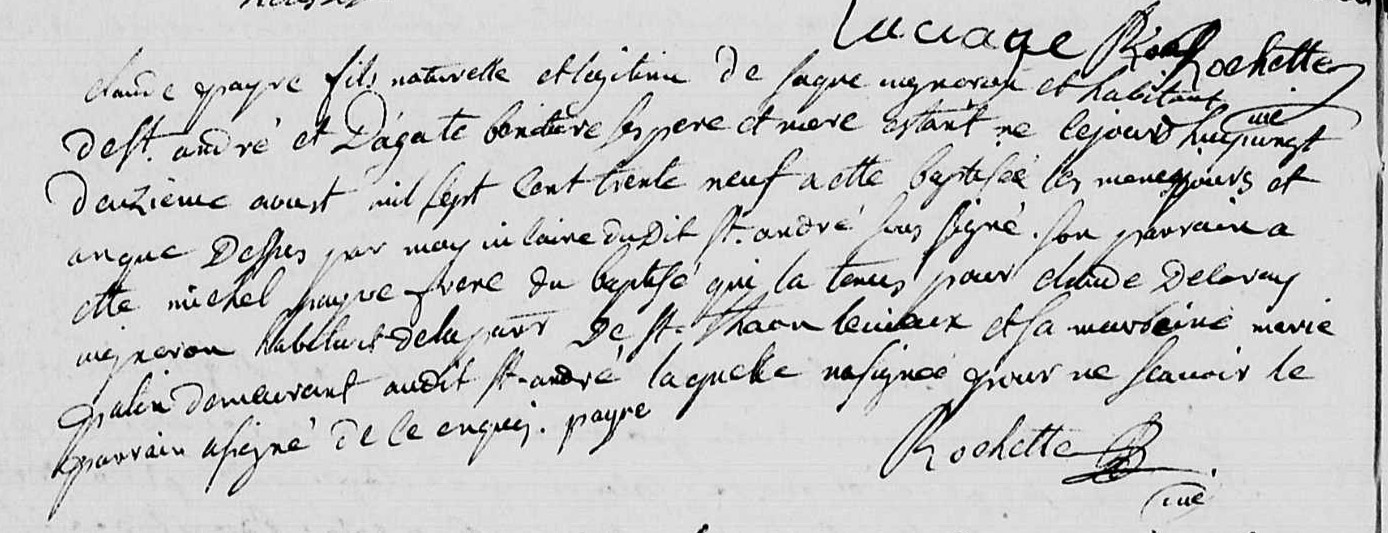 Rochette
claude payre fils naturelle et legitime de jaque vigneron et habitant
de st. andré et D'agate ses pere et mere estant né le jourd huy vingt
deuzieme aoust mil sept cent trente neuf a ette baptisée les memes jours et
an que Dessus par moy vicaire dudit st. andré sous signé. son parrain a
ette michel payre frere du baptisé qui la tenus pour claude Deloray
vigneron habitant de la parr De st. haon le vieux et sa marraine marie
palin demeurant audit st. andré laquelle na signée pour ne scavoir le
parrain a signé de ce enquis. payre
Rochette
vic